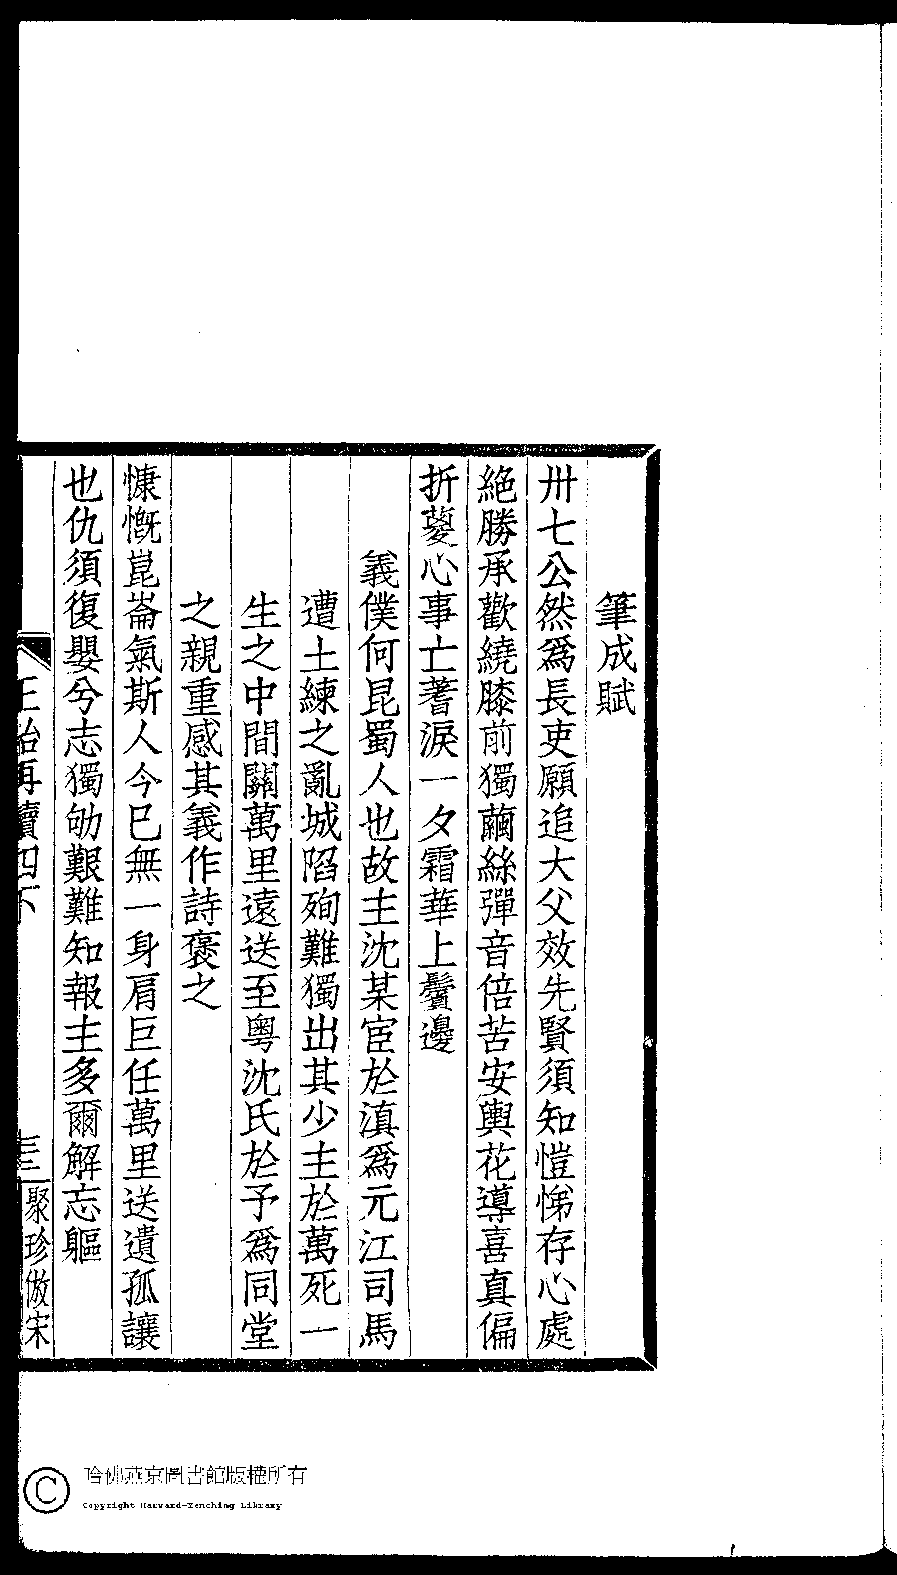 筆成賦
卅七公然爲長吏願追大父效先賢須知愷悌存心處
絶勝承歡繞膝前獨繭絲彈音倍苦安輿花導喜真偏
折薆心事亡蓍淚一夕霜華上鬢邊
義僕何昆蜀人也故主沈某宦於滇爲元江司馬
遭土練之亂城陷殉難獨出其少主於萬死一
生之中間關萬里遠送至粤沈氏於予爲同堂
之親重感其義作詩褒之
慷慨崑崙氣斯人今已無一身肩巨任萬里送遺孤讓
也仇須復嬰兮志獨劬艱難知報主多爾解忘軀
再續四下
聚珍倣宋
哈佛燕京圖書館版權所有
Copyright Harvard-Yenching Library